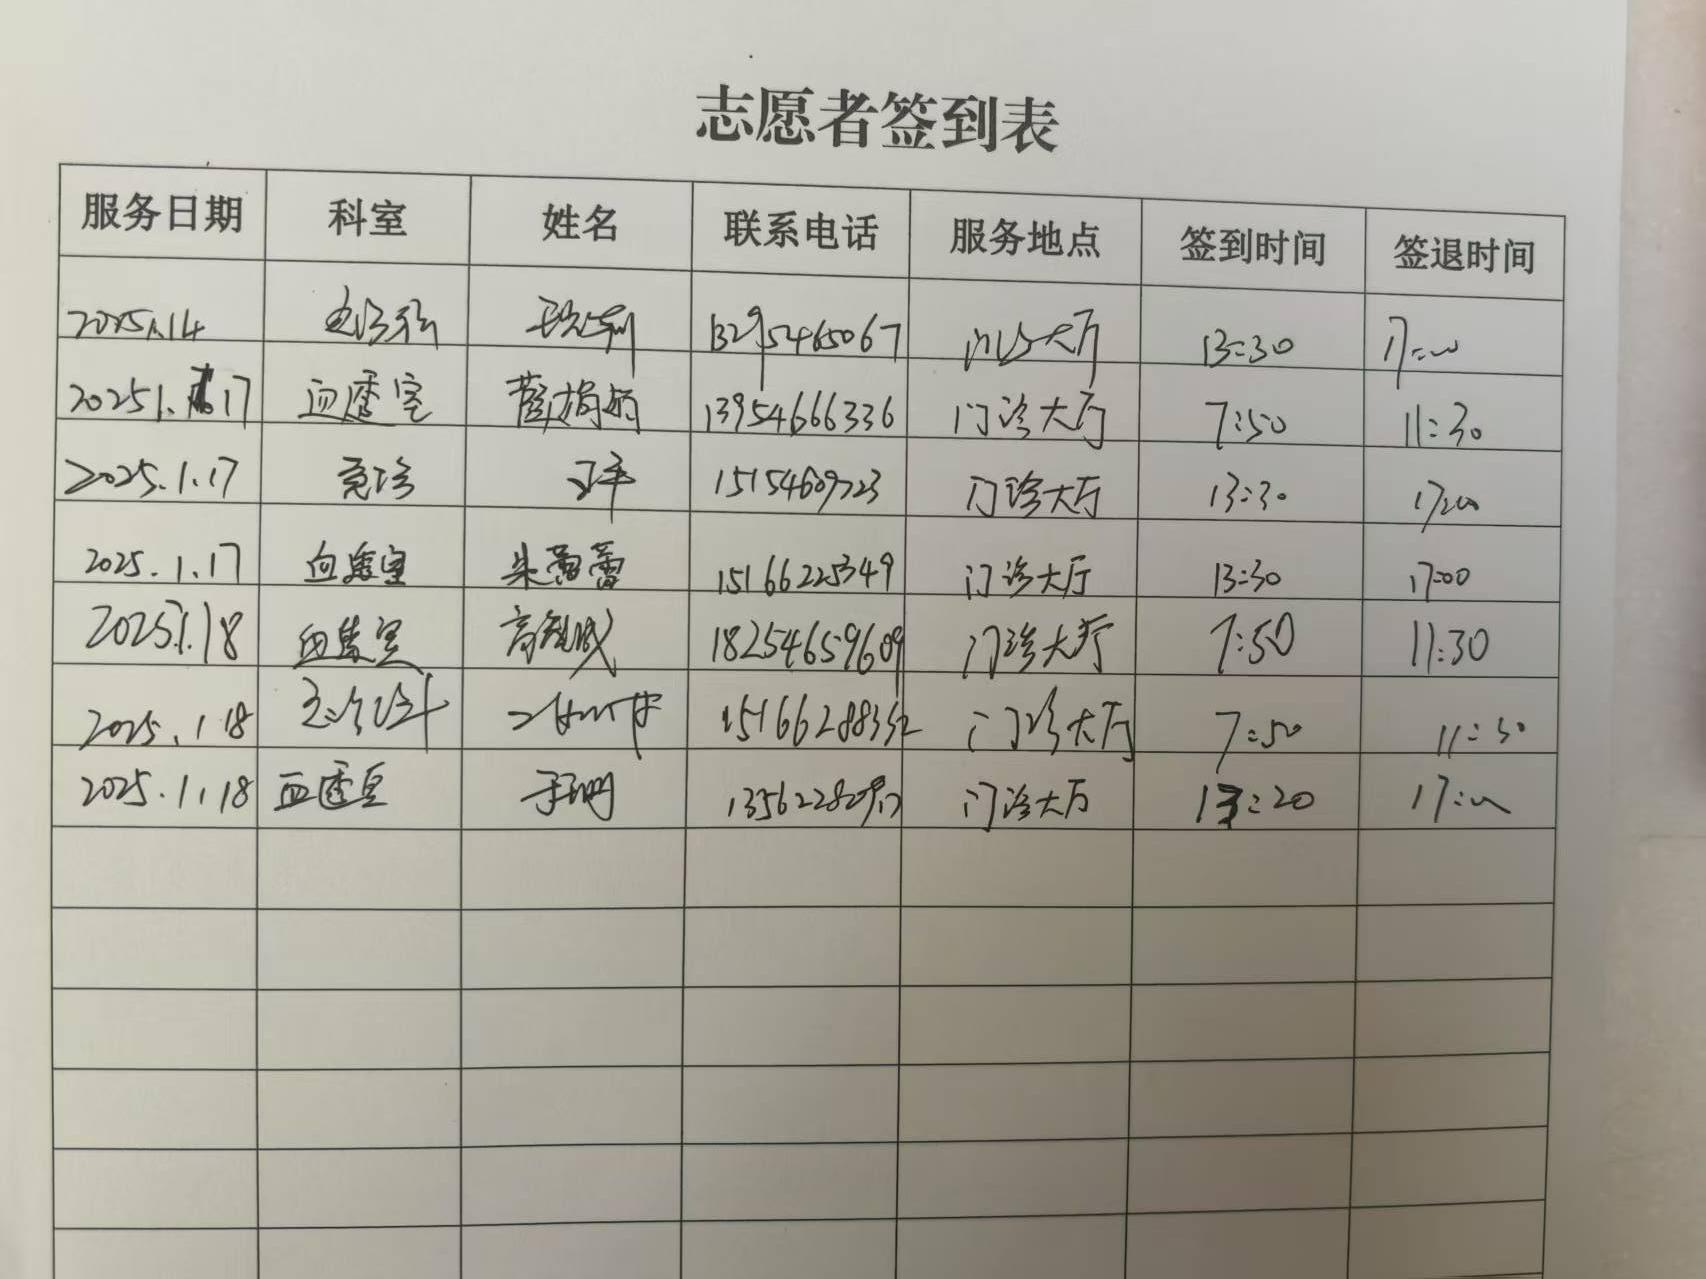 志愿者签到表
服务日期 科室 姓名 联系电话 服务地点 签到时间 签退时间
2025.1.14 13295465067 门诊大厅 13:30 17:00
2025.1.17 血透室 13954666336 门诊大厅 7:50 11:30
2025.1.17 15154609723 门诊大厅 13:30 17:00
2025.1.17 血透室 朱蕾蕾 15166225349 门诊大厅 13:30 17:00
2025.1.18 血透室 18254659609 门诊大厅 7:50 11:30
2025.1.18 15166288352 门诊大厅 7:50 11:30
2025.1.18 血透室 门诊大厅 13:20 17:00